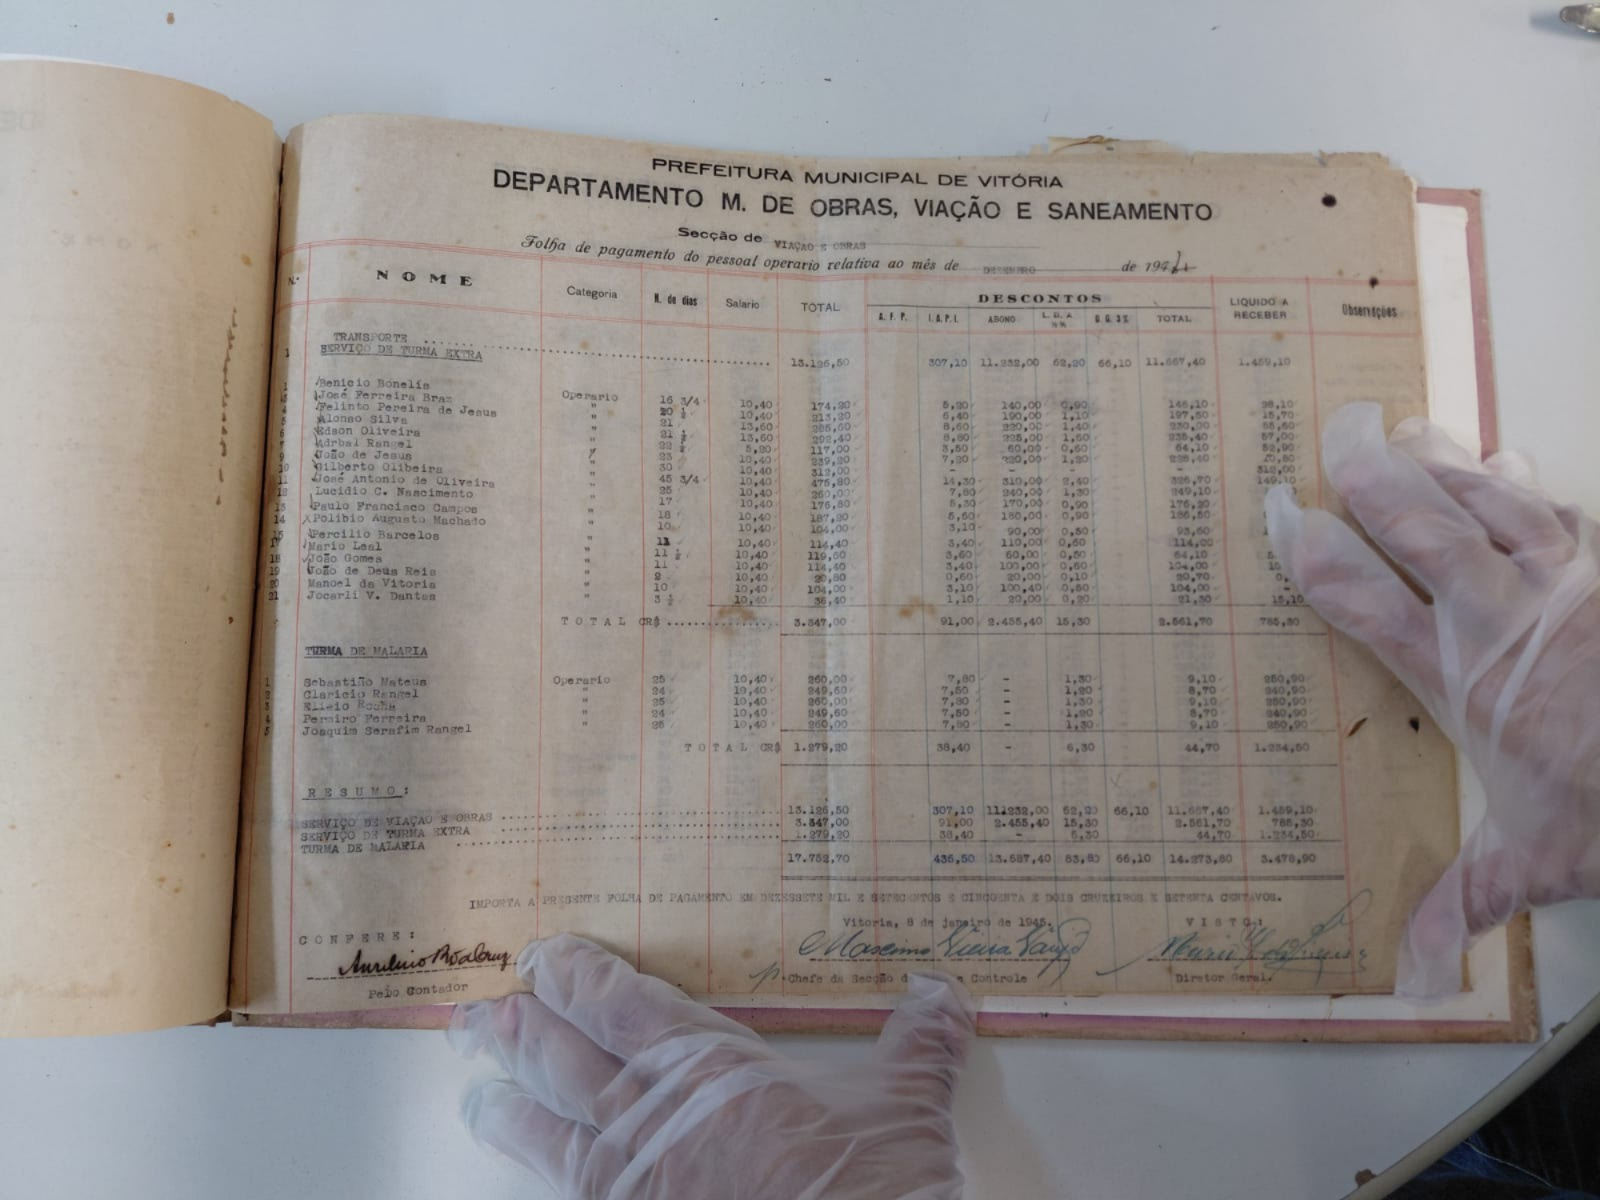 PREFEITURA MUNICIPAL DE VITÓRIA
DEPARTAMENTO M. DE OBRAS, VIAÇÃO E SANEAMENTO
Secção de VIAÇAO E OBRAS
Folha de pagamento do pessoal operario relativa ao mês de DEZEMBRO de 1944
N.º NOME Categoria N. de dias Salario TOTAL DESCONTOS LIQUIDO A RECEBER Observações
A. F. P. I. A. P. I. ABONO L. B. A. TOTAL
TRANSPORTE
1 SERVIÇO DE TURMA EXTRA 13.126,50 307,10 11.232,00 62,20 66,10 11.667,40 1.459,10
1 Benicio Bonelis Operario 16 3/4 10,40 174,20 5,20 140,00 0,90 146,10 28,10
José Ferreira Braz " 20 ½ 10,40 213,20 6,40 190,00 1,10 197,50 15,70
4 Felinto Pereira de Jesus " 21 13,60 285,60 8,60 220,00 1,40 230,00 55,60
5 Alonso Silva " 21 ½ 13,60 292,40 8,80 225,00 1,60 235,40 57,00
6 Edson Oliveira " 22 ½ 5,20 117,00 3,50 60,00 0,60 64,10 52,90
7 Adrbal Rangel " 23 10,40 239,20 7,20 220,00 1,20 228,40 10,80
9 João de Jesus " 30 10,40 312,00 - - - 312,00
10 Gilberto Olibeira " 45 3/4 10,40 475,80 14,30 310,00 2,40 326,70 149,10
11 José Antonio de Oliveira " 25 10,40 260,00 7,80 240,00 1,30 249,10
12 Lucidio C. Nascimento " 17 10,40 176,80 5,30 170,00 0,90 176,20
13 Paulo Francisco Campos " 18 10,40 187,20 5,60 180,00 0,90 186,50
14 Polibio Augusto Machado " 10 10,40 104,00 3,10 90,00 0,50 93,60
15 Percilio Barcelos " 11 10,40 114,40 3,40 110,00 0,60 114,00
17 Mario Leal " 11 ½ 10,40 119,60 3,60 60,00 0,50 64,10
18 João Gomes " 11 10,40 114,40 3,40 100,00 0,60 104,00
19 João de Deus Reis " 2 10,40 20,80 0,60 20,00 0,10 20,70
20 Manoel da Vitoria " 10 10,40 104,00 3,10 100,40 0,50 104,00 -
21 Jocarli V. Dantas " 3 ½ 10,40 36,40 1,10 20,00 0,20 21,30 15,10
TOTAL CR$ 3.347,00 91,00 2.455,40 15,30 2.561,70 785,30
TURMA DE MALARIA
1 Sebastião Mateus Operario 25 10,40 260,00 7,80 - 1,30 9,10 250,90
2 Claricio Rangel " 24 10,40 249,60 7,50 - 1,20 8,70 240,90
3 Elisio Rocha " 25 10,40 260,00 7,80 - 1,30 9,10 250,90
4 Permiro Ferreira " 24 10,40 249,60 7,50 - 1,20 8,70 240,90
5 Joaquim Serafim Rangel " 25 10,40 260,00 7,80 - 1,30 9,10 250,90
TOTAL CR$ 1.279,20 38,40 - 6,30 44,70 1.234,50
RESUMO:
SERVIÇO DE VIAÇÃO E OBRAS 13.126,50 307,10 11.232,00 62,20 66,10 11.667,40 1.459,10
SERVIÇO DE TURMA EXTRA 3.347,00 91,00 2.455,40 15,30 2.561,70 785,30
TURMA DE MALARIA 1.279,20 38,40 - 6,30 44,70 1.234,50
17.752,70 436,50 13.687,40 83,80 66,10 14.273,80 3.478,90
IMPORTA A PRESENTE FOLHA DE PAGAMENTO EM DEZESSETE MIL E SETECONTOS E CINCOENTA E DOIS CRUZEIROS E SETENTA CENTAVOS.
Vitoria, 8 de janeiro de 1945.
CONFERE: VISTO:
Pelo Contador
Chefe da Secção d e Controle
Diretor Geral.